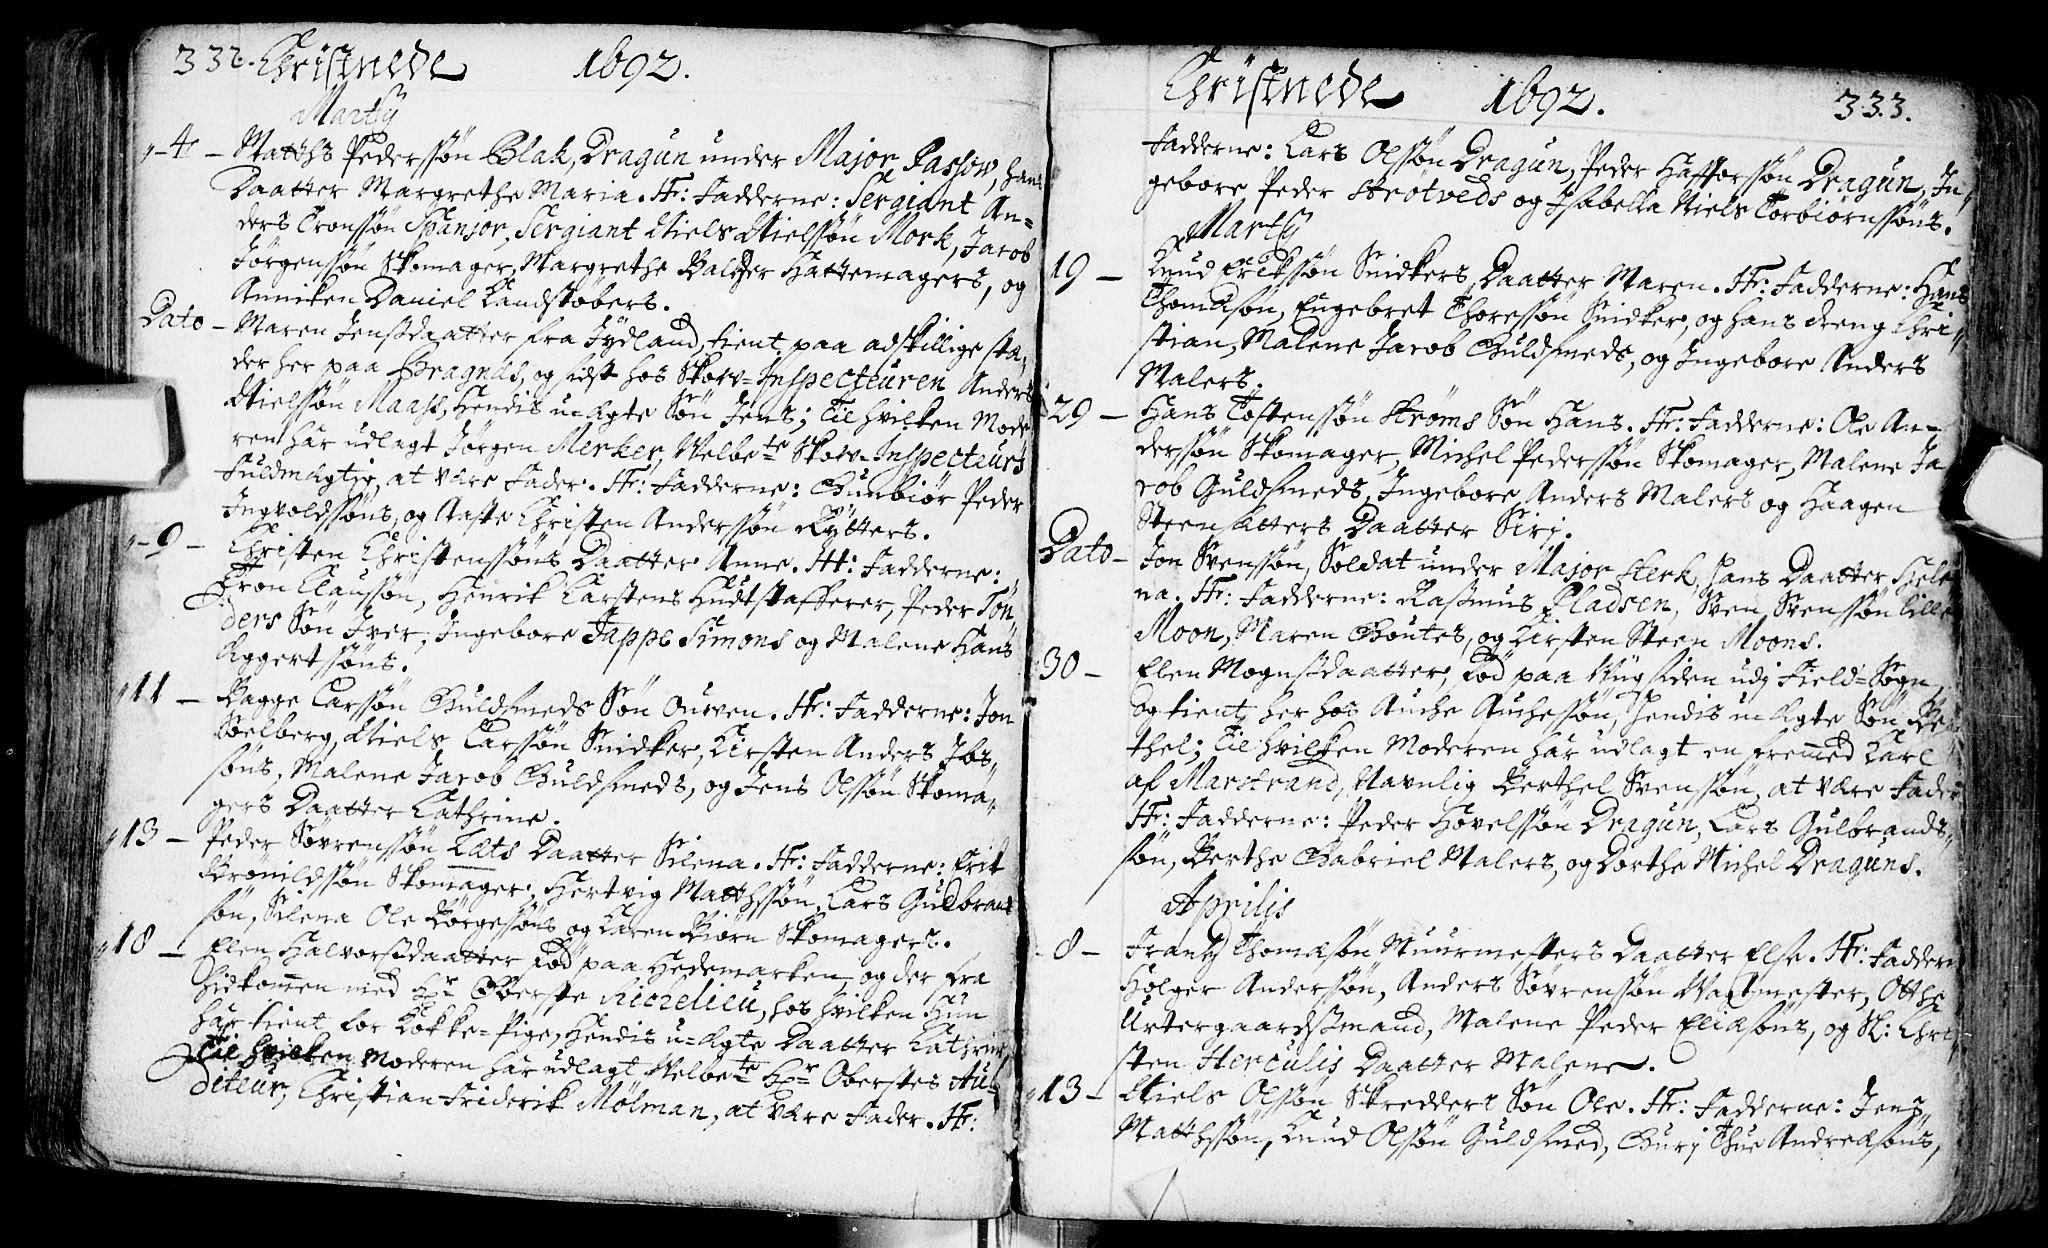 332. Christnede 1692.
Martij
4 — Matths Pederssön Blak, Dragun under Major Passow, hans
Daatter Margrethe Maria. Fr: Fadderne: Sergiant An=
ders Tronssön Spanior, Sergiant Niels Nielssön Mork, Jacob
Jörgenssön Skomager, Margrethe Baltzer Hattemagers, og
Anniken Daniel Kandstöbers.
Dato — Maren Jensdaatter fra Jydland, tient paa adskillige stæ-
der her paa Bragnæs, og sidst hos Skow=Inspecteuren Anders
Nielssön Maass, Hendis u-ægte Sön Jens; Til hvilken Mode
ren har udlagt Jörgen Merker, Welbe.te Skow-Inspecteurs
Fuldmægtig, at være Fader. Fr: Fadderne: Gunbiör Peder
Ingvoldssöns, og Aaste Christen Anderssön Rytters.
9 — Christen Christenssöns Daatter Anne. Fr: Fadderne:
Tron Claussön, Henrik Karstens Hudtstafferer, Peder Tön
ders Sön Iver, Ingebore Jappe Simons og Malene Hans
Aggertssöns.
11 — Bagge Larssön Guldsmeds Sön Ousven. Fr: Fadderne: Jon
Soelberg, Niels Larssön Snidker, Kirsten Anders Ibs-
söns, Malene Jacob Guldsmeds, og Jens Olssön Skoma-
gers Daatter Cathrine.
13 — Peder Sövrenssön Læts Daatter Silena. Fr: Fadderne: Erik
Brönildssön Skomager, Hertvig Matthssön, Lars Gudbrand
sön, Silena Ole Börgessöns og Karen Biörn Skomagers.
18 — Elen Halvorsdaatter Föd paa Hedemarken, og der fra
hidkommen med Hr Oberste Ricrelieu, hos hvilken Hun
har tient for Kokke=Pige, Hendis u=ægte Daatter Cathrine
Til hvilken Moderen har udlagt Welbe.te Hr Oberstes Au-
diteur, Christian Friderik Mölman, at være Fader. Fr:
Christnede 1692. 333.
Fadderne: Lars Olssön Dragun, Peder Hafforssön Dragun, In-
gebore Peder Strötveds og Isabella Niels Torbiörnssöns.
Martij
19 — Knud Erikssön Snidkers Daatter Maren. Fr: Fadderne: Hans
Thomæsön, Engebret Thoressön Snidker, og hans dreng Chri-
stian, Malene Jacob Guldsmeds, og Ingebore Anders
Malers.
29 — Hans Tostenssön Ströms Sön Hans. Fr: Fadderne: Ole An-
derssön Skomager, Michel Pederssön Skomager, Malene Ja
cob Guldsmeds, Ingebore Anders Malers og Haagen
Steensætters Daatter Siri.
Dato — Jon Svenssön, Soldat under Major Sterk, hans Daatter Hele
na. Fr: Fadderne: Rasmus Pladsen, Sven Svenssön Lille
Moon, Maren Goutes, og Kirsten Steen Moons.
30 — Elen Mognsdaatter, Föd paa Nygsiden udj Field=Sogn,
Og tient her hos Anche Anchessön, Hendis u-ægte Sön Ber
thel; Til hvilken Moderen har udlagt en fremmed Karl
af Marstrand, Navnlig Berthel Svenssön, at være Fader
Fr: Fadderne: Peder Hovelssön Dragun, Lars Gulbrands-
sön, Berthe Gabriel Malers, og Dorthe Michel Draguns.
Aprilis
8 — Frantz Thomæsön Muurmesters Daatter Else. Fr: Faddern
Holger Anderssön, Anders Sövrenssön Vagtmester, Otthe
Urtergaardsmand, Malene Peder Eliæsöns, og Sl: Chri-
sten Herculis Daatter Malene.
13 — Niels Olssön Skredders Sön Ole. Fr: Fadderne: Jens
Matthssön, Knud Olssön Guldsmed, Guri Thue Andreæsöns,